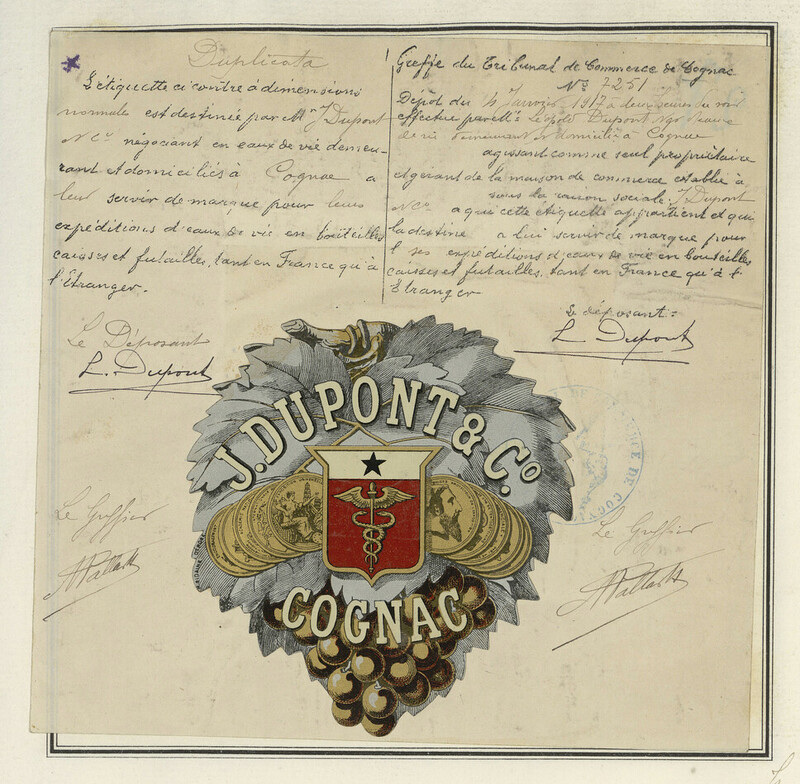 Duplicata
L'étiquette ci contre à dimensions
normales est destinée par Mr J Dupont
& Co négociant en eaux de vie demeu-
rant et domiciliés à Cognac a
leur servir de marque pour leurs
expéditions d'eaux de vie en bouteilles
caisses et futailles, tant en France qu'à
l'Etranger.
Le Déposant
L. Dupont
Greffe du Tribunal de Commerce de Cognac
No 7251
Dépôt du Janvier 1917 à deux heures du soir
effectué par Mr Léopold Dupont
de vie demeurant et domicilié à Cognac
agissant comme seul propriétaire
et gérant de la maison de commerce établie à
sous la raison sociale J Dupont
& Co a qui cette étiquette appartient et qui
la destine a lui servir de marque pour
ses expéditions d'eaux de vie en bouteilles
caisses et futailles, tant en France qu'à l'
Etranger
Le déposant:
L. Dupont
J. DUPONT & Co.
COGNAC
Le Greffier
Le Greffier